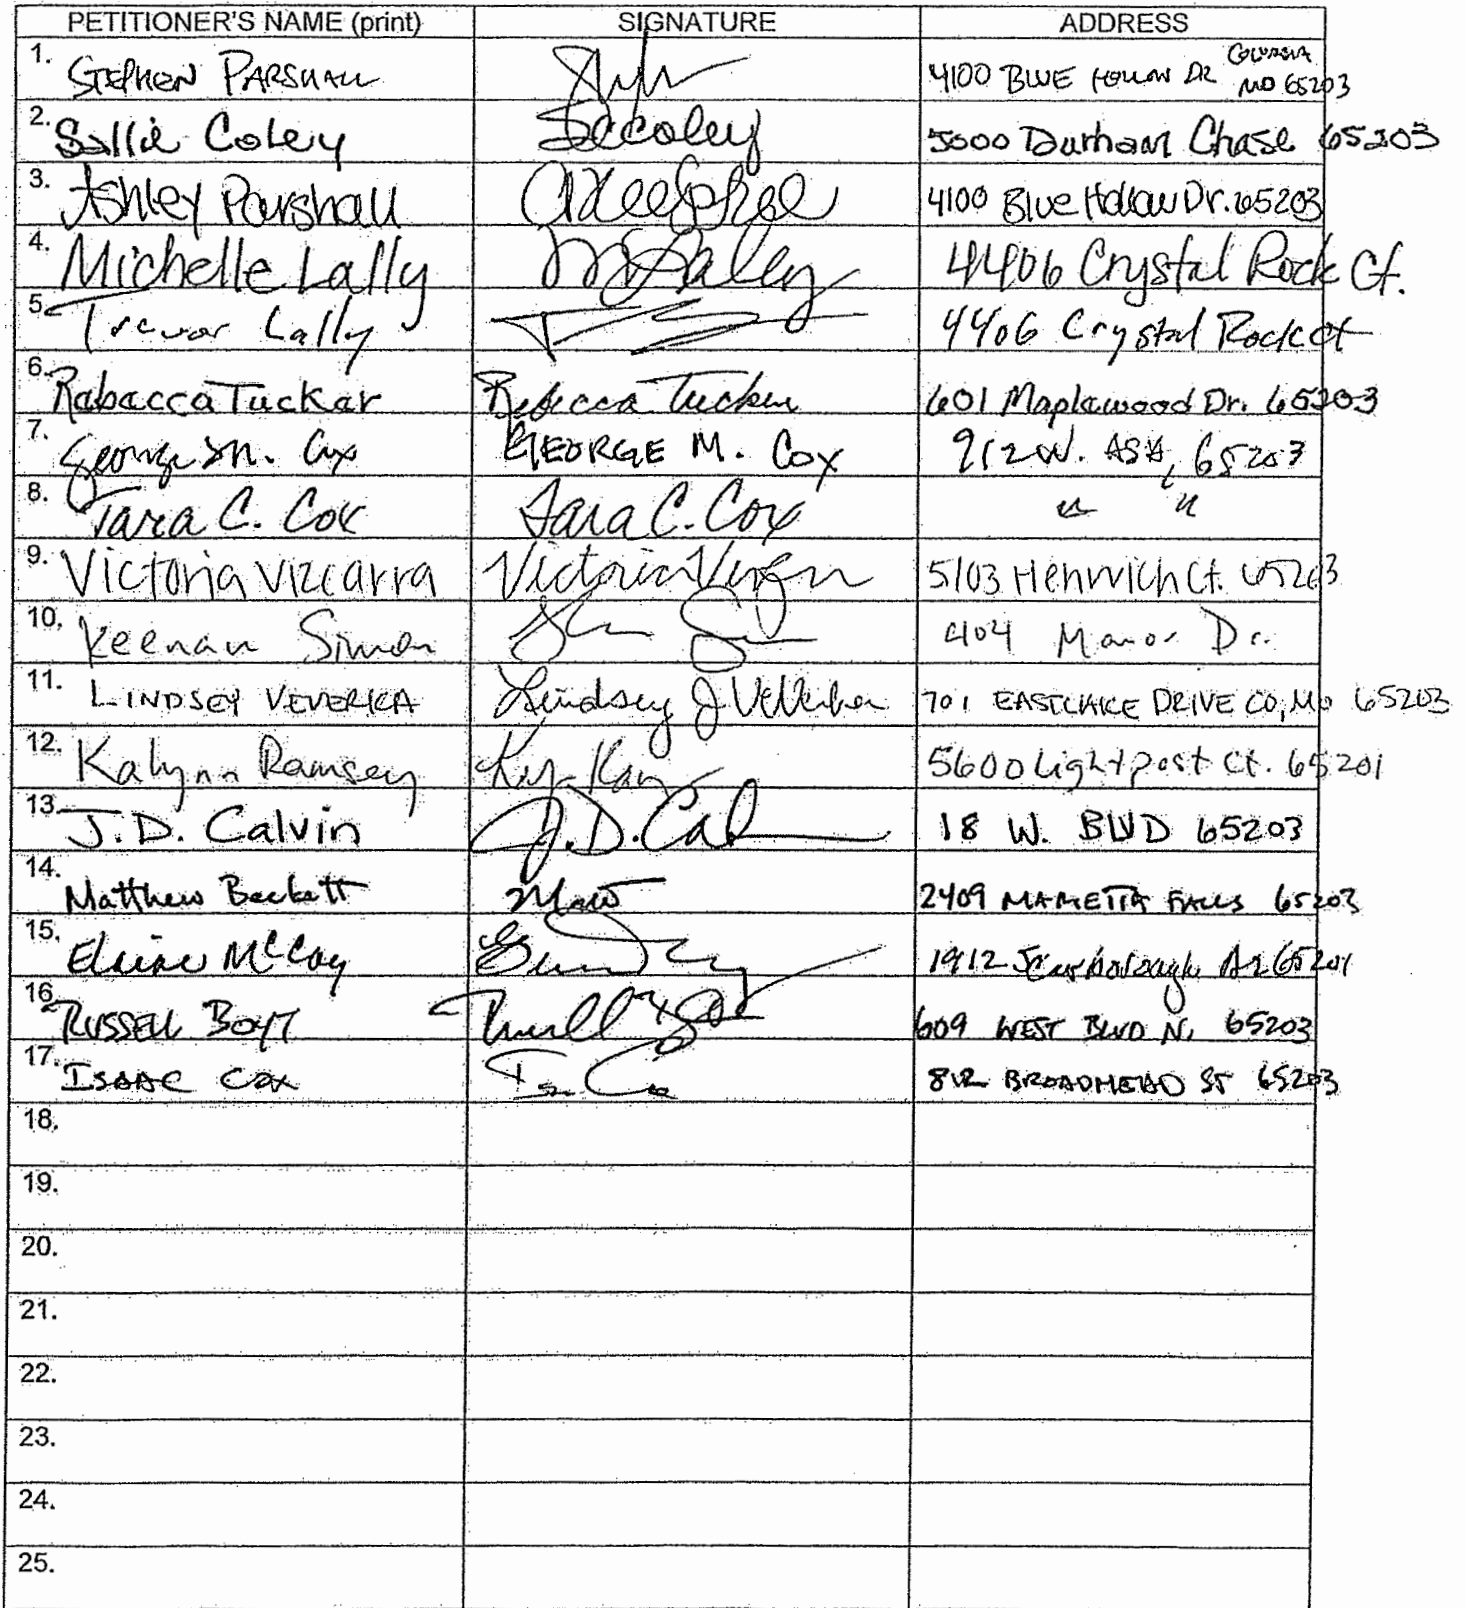 PETITIONER'S NAME (print) SIGNATURE ADDRESS
1. STEPHEN PARSHALL 4100 BLUE HOLLOW DR COLUMBIA MO 65203
2. Sallie Coley SEColey 5000 Durham Chase 65203
3. Ashley Parshall 4100 Blue Hollow Dr. 65203
4. Michelle Lally M Lally 4406 Crystal Rock Ct.
5. Trevor Lally 4406 Crystal Rock Ct
6. Rebecca Tucker Rebecca Tucker 601 Maplewood Dr. 65203
7. George M. Cox GEORGE M. COX 912 W. ASH, 65203
8. Tara C. Cox Tara C. Cox " "
9. Victoria Vizcarra Victoria 5103 Henwich Ct. 65203
10. Keenan Simon 404 Manor Dr.
11. LINDSEY VEVERKA Lindsey J Veverka 701 EASTLAKE DRIVE CO, MO 65203
12. Kalynn Ramsey 5600 Lightpost Ct. 65201
13. J.D. Calvin J.D. Cal 18 W. BLVD 65203
14. Matthew Beckett Matt 2409 MARIETTA FALLS 65203
15. Elaine McCoy 1912 Scarborough Dr 65201
16. RUSSELL BOYT 609 WEST BLVD N. 65203
17. ISAAC COX 812 BROADHEAD ST 65203
18.
19.
20.
21.
22.
23.
24.
25.